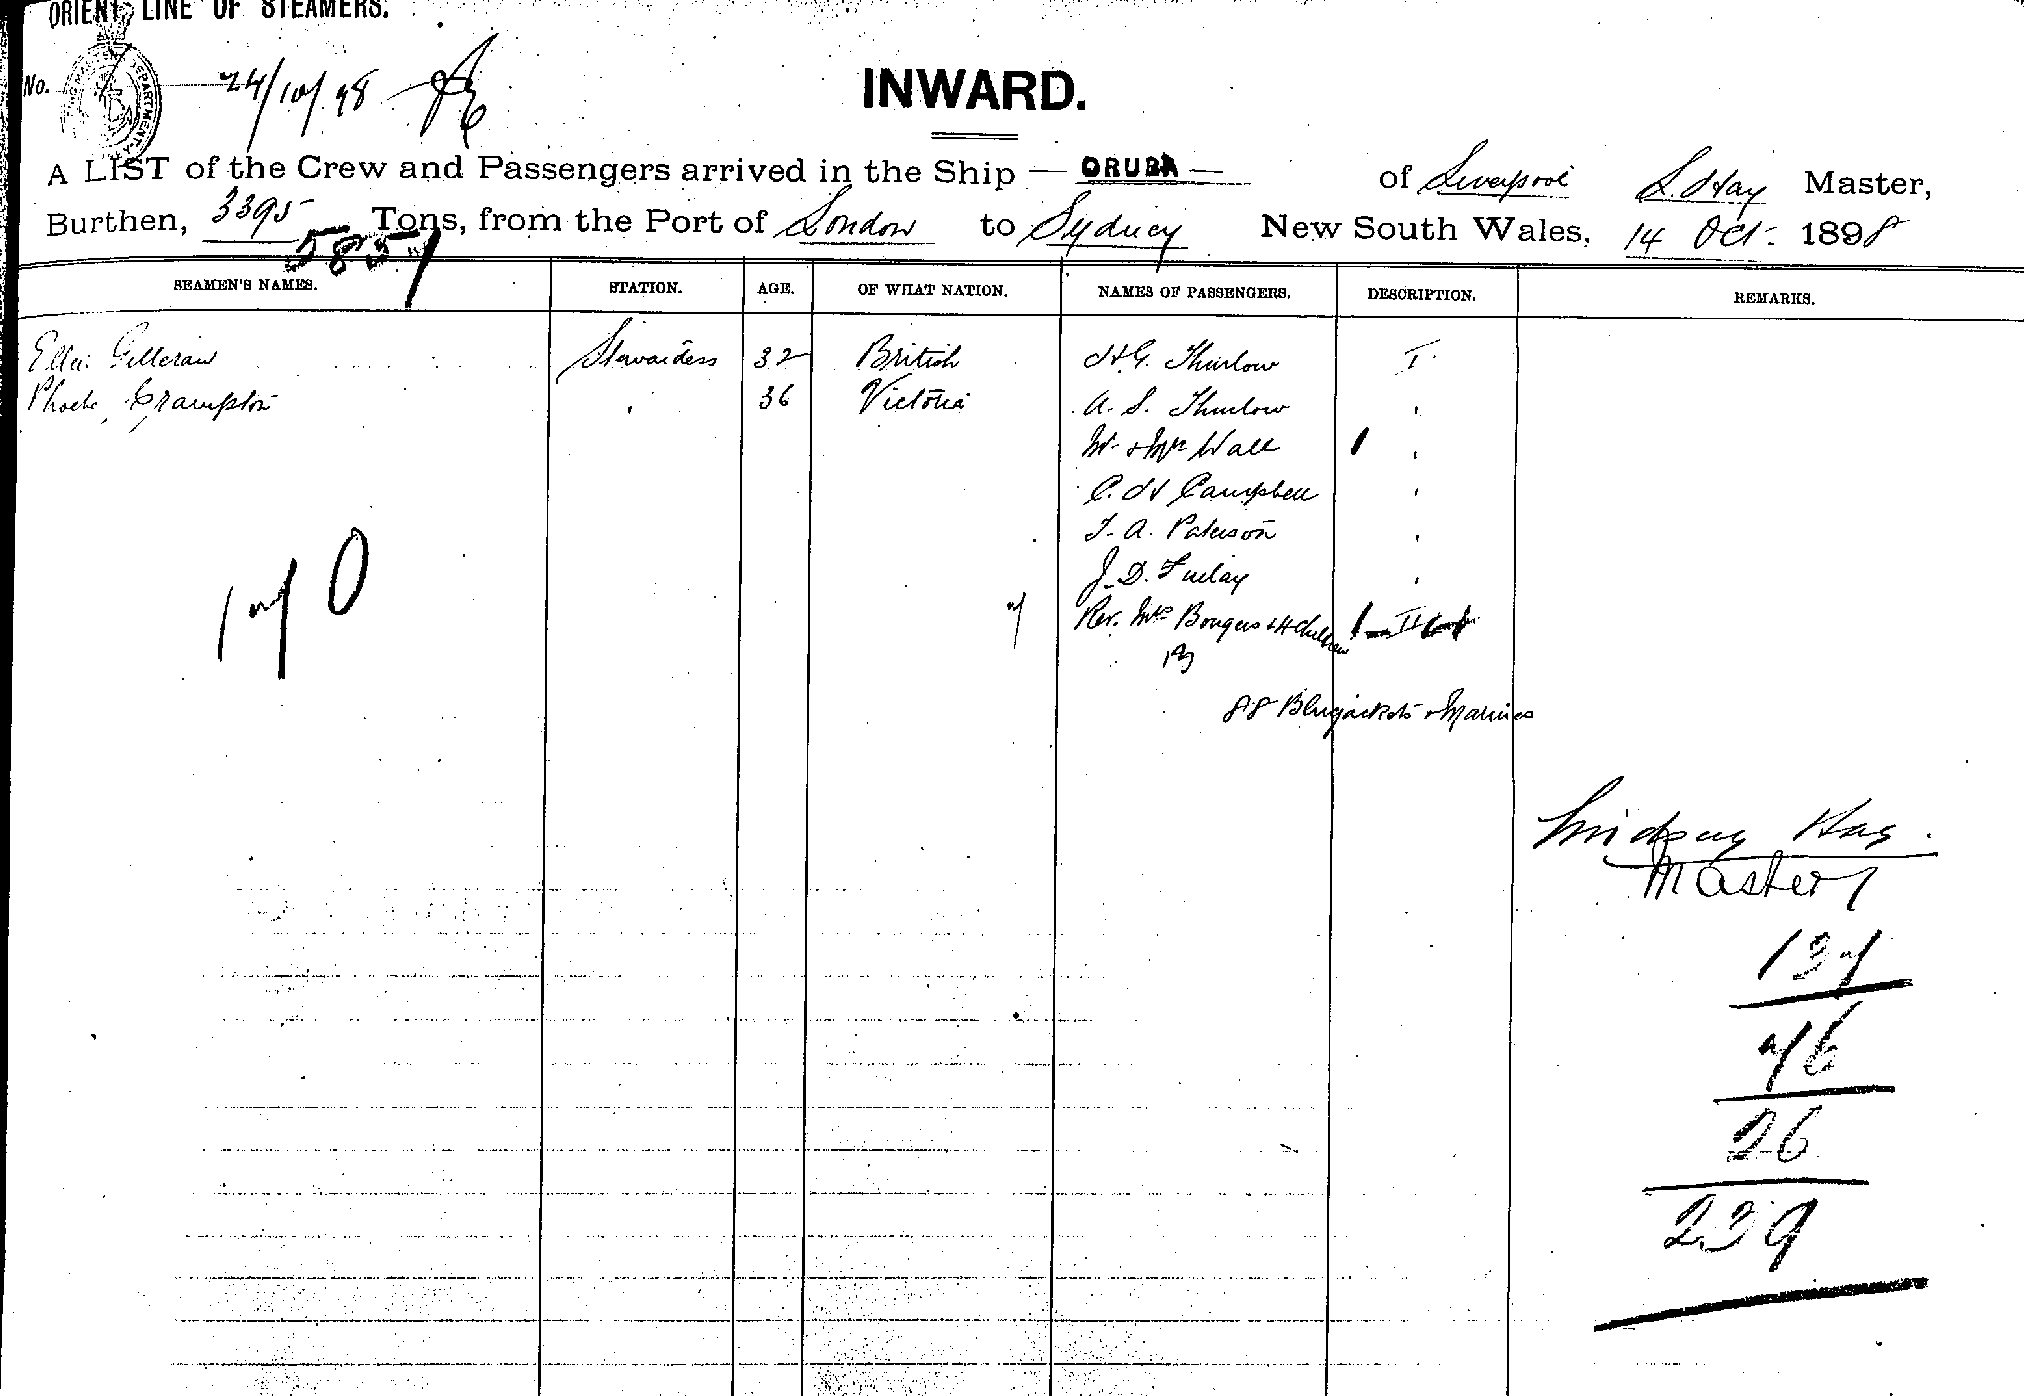 ORIENT LINE OF STEAMERS.
No. 24/10/98
INWARD.
A LIST of the Crew and Passengers arrived in the Ship — ORUBA — of Liverpool L. Hay Master,
Burthen, 3395 Tons, from the Port of London to Sydney New South Wales, 14 Oct. 1898
5857
SEAMEN'S NAMES. STATION. AGE. OF WHAT NATION. NAMES OF PASSENGERS. DESCRIPTION. REMARKS.
Ellen Gilleran Stewardess 32 British H G. Thurlow I.
Phoebe Crampton " 36 Victoria A. S. Thurlow "
Mr & Mrs Wall "
C. H Campbell "
T. A. Paterson "
J. D. Finlay "
170
7 Rev. Mrs Bongers & 4 Children II
13
88 Bluejackets & Marines
Lindsay Hay.
Master
137
76
26
239